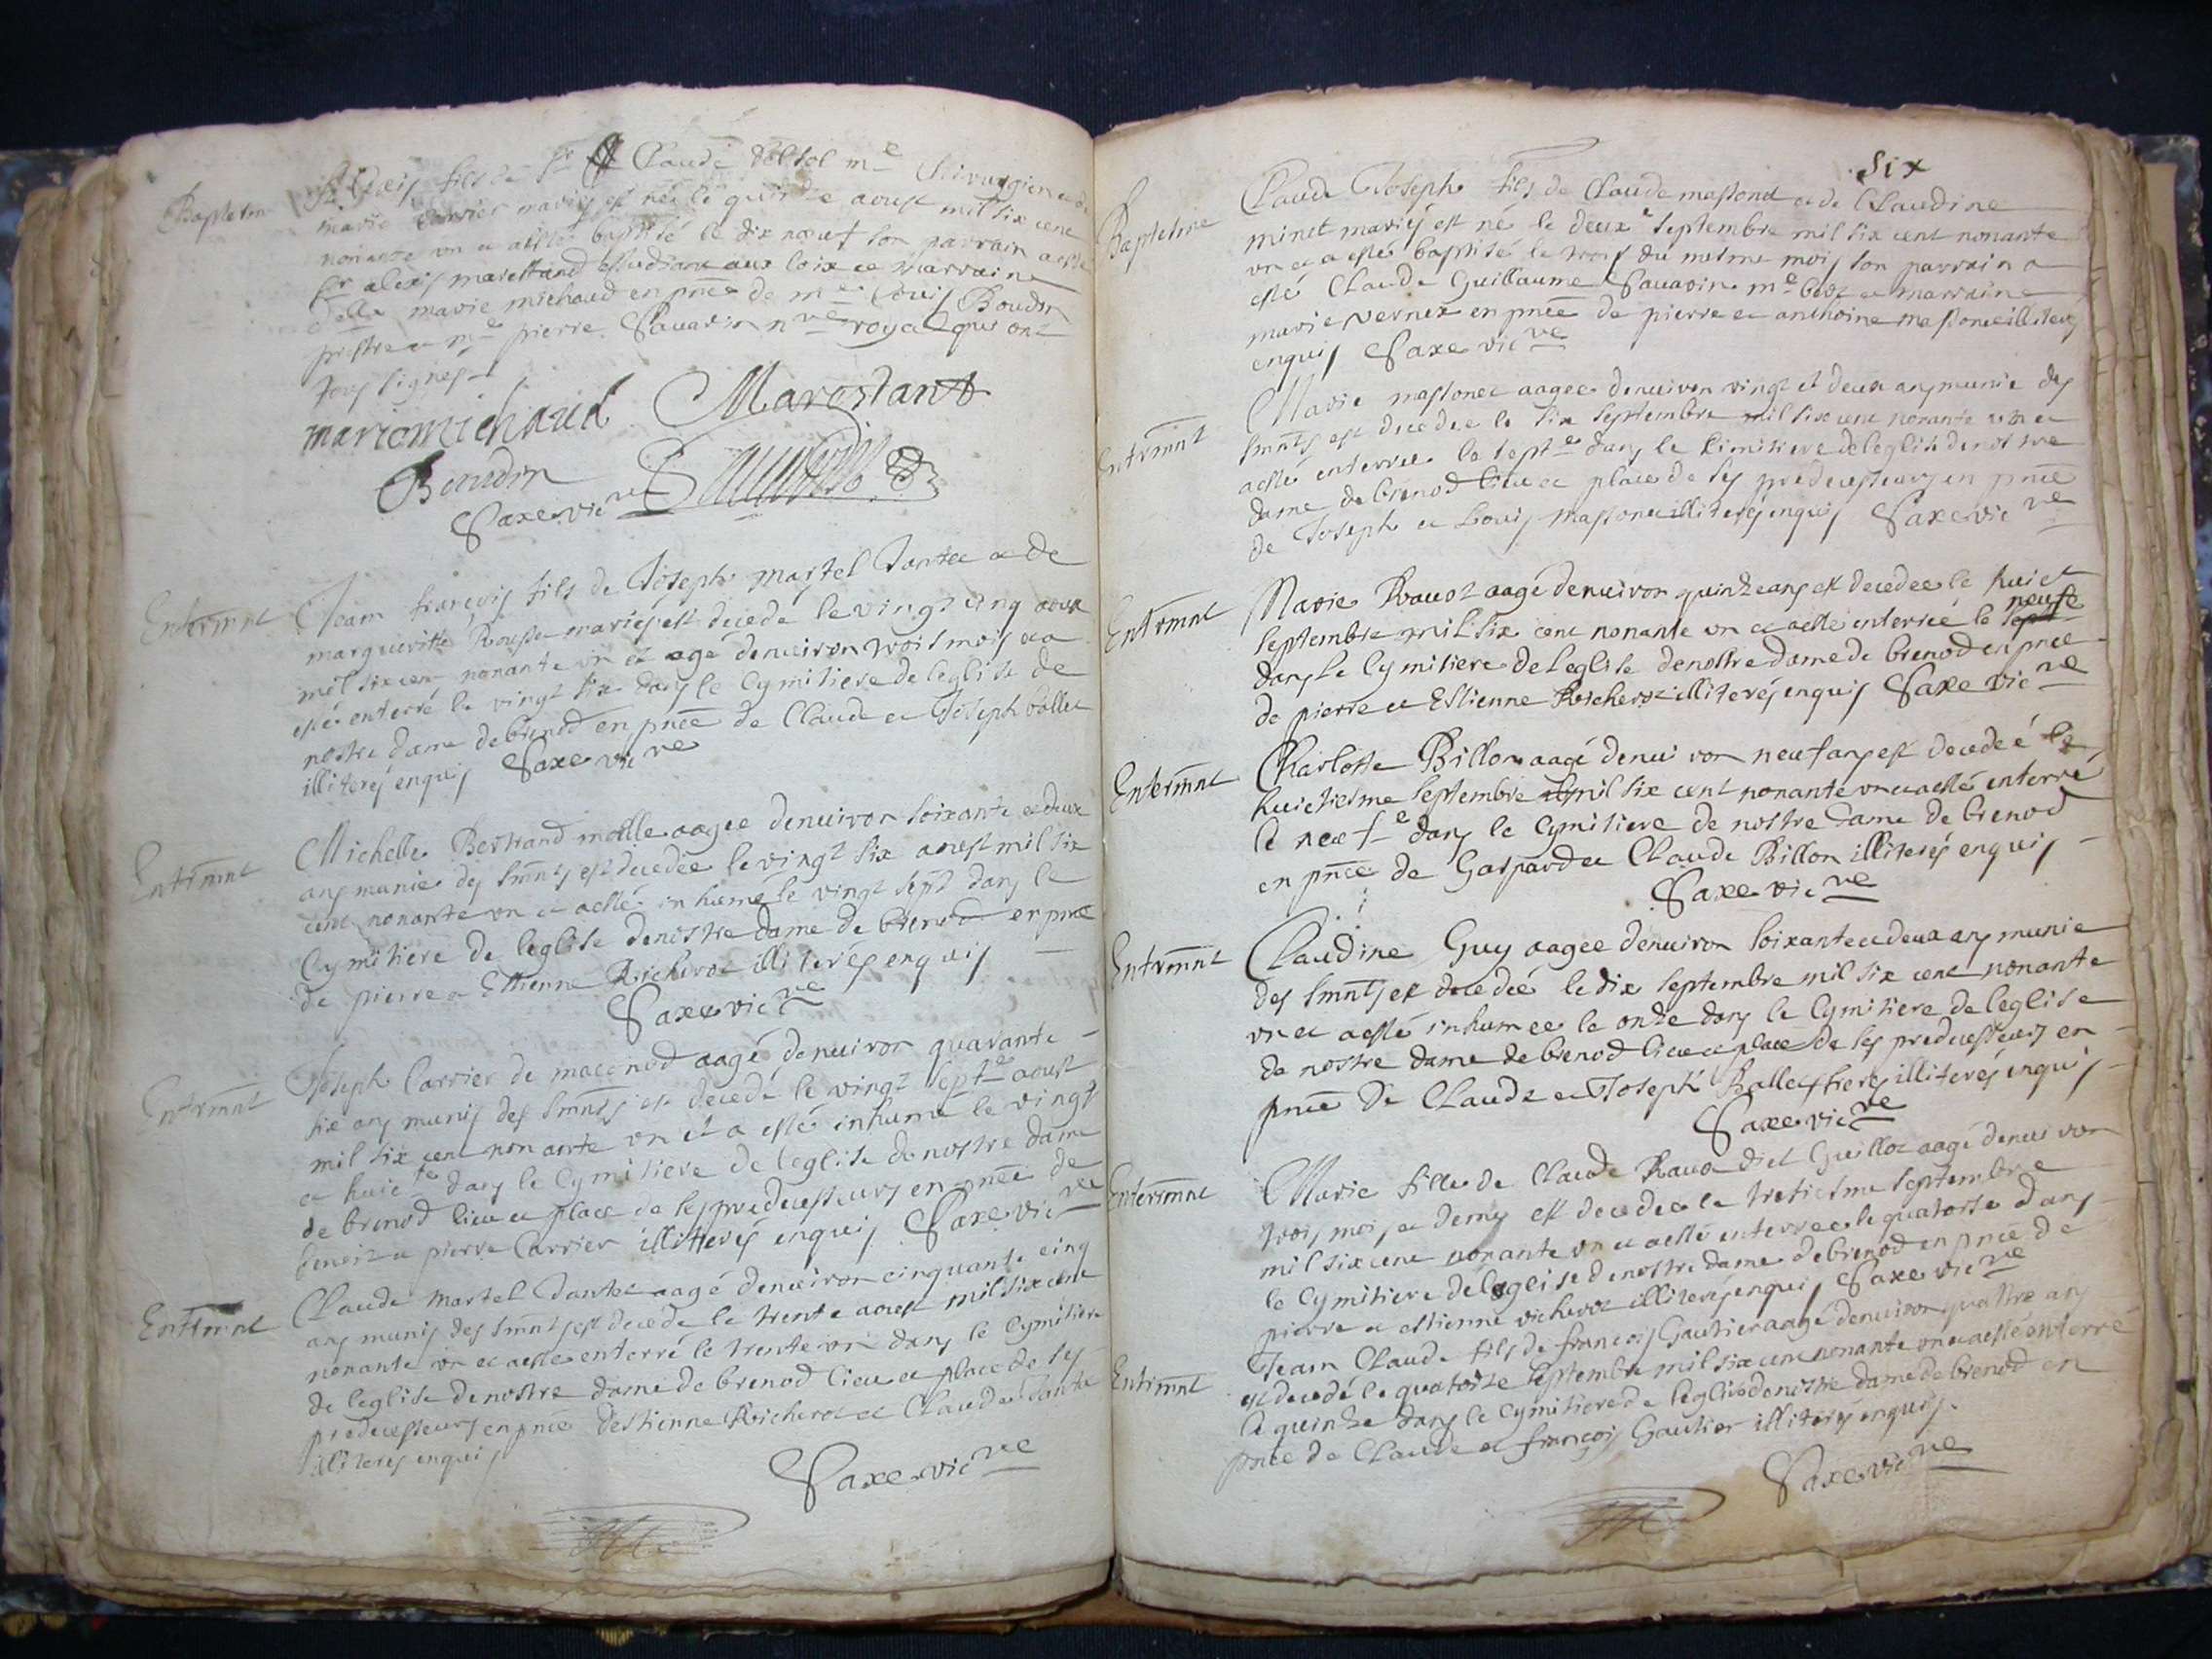 Baptesme
Alexis fils de Sr Claude dolsol me Chirurgien et de
marie Carrier mariés est né le quinze aoust mil six cent
nonante vn et a esté baptisé le dix neuf son parrain a esté
Sr alexis mareschand estudiant aux loix et marraine
delle marie michaud en pnce de mre Louis Boudin
prestre et me pierre Sauarin nre royal qui ont
tous signés
marie michaud Mareschant
Boudin
Saxe vicre
Entermnt
Jean françois fils de Joseph martel Tantet et de
margueritte Rousset mariés est decedé le vingt cinq aoust
mil six cent nonante vn et agé denuiron trois mois et a
esté enterré le vingt six dans le Cymitiere de leglise de
nostre dame de brenod en pnce de Claude et Joseph ballet
illiterés enquis Saxe vicre
Entermnt
Michelle Bertrand molle aagee denuiron soixante et deux
ans munie des Smnts est decedee le vingt six aoust mil six
cent nonante vn et a esté inhumé le vingt sept dans le
Cymitiere de leglise de nostre dame de brenod en pnce
de pierre et Estienne Richerot illiterés enquis
Saxe vicre
Entermnt
Joseph Carrier de maconod aagé denuiron quarante
six ans munis des Smnts est decedé le vingt septe aoust
mil six cent nonante vn et a esté inhumé le vingt
et huicte dans le Cymitiere de leglise de nostre dame
de brenod lieu et place de ses predecesseurs en pnce de
benoit et pierre Carrier illitterés enquis Saxe vicre
Entermnt
Claude martel Tantet aagé denuiron cinquante cinq
ans munis des Smnts est decedé le trente aoust mil six cent
nonante vn et a esté enterré le trente vn dans le Cymitiere
de leglise de nostre dame de brenod lieu et place de ses
predecesseurs en pnce destienne Richerot et Claude Tante
illiterés enquis
Saxe vicre
Six
Baptesme
Claude Joseph fils de Claude massonet et de Claudine
minet mariés est né le deuxe septembre mil six cent nonante
vn et a esté baptisé le trois du mesme mois son parrain a
esté Claude Guillaume Sauarin me et marraine
marie vernex en pnce de pierre et anthoine massonet illiterés
enquis Saxe vicre
Entermnt
Marie massonet aagee denuiron vingt et deux ans munie des
Smnts est decedee le six septembre mil six cent nonante vn et
a esté enterree le septe dans le Cimitiere de leglise de nostre
dame de brenod lieu et place de ses predecesseurs en pnce
de Joseph et Louis massonet illiterés enquis Saxe vicre
Entermnt
Marie Rauot aagé denuiron quinze ans est decedee le huict
septembre mil six cent nonante vn et a esté enterrée le sept neufe
dans le Cymitiere de leglise de nostre dame de brenod en pnce
de pierre et Estienne Richerot illiterés enquis Saxe vicre
Entermnt
Charlotte Billon aagé denuiron neuf ans est decedeé le
huictiesme septembre mil six cent nonante vn et a esté enterré
le neufe dans le Cymitiere de nostre dame de brenod
en pnce de Gaspard et Claude Billon illiterés enquis
Saxe vicre
Entermnt
Claudine Guy aagee denuiron soixante et deux ans munie
des Smnts est decedeé le dix septembre mil six cent nonante
vn et a esté inhumee le onze dans le Cymitiere de leglise
de nostre dame de brenod lieu et place de ses predecesseurs en
pnce de Claude et Joseph Ballet freres illiterés enquis
Saxe vicre
Entermnt
Marie fille de Claude Rauot dict Guillot aagé denuiron
trois mois et demy est decedee le tretiesme septembre
mil six cent nonante vn et a esté enterree le quatorze dans
le Cymitiere de leglise de nostre dame de brenod en pnce de
pierre et estienne richerot illiterés enquis Saxe vicre
Entermnt
Jean Claude fils de francois Gautier aagé denuiron quattre ans
est decedé le quatorze septembre mil six cent nonante vn et a esté enterré
le quinze dans le Cymitiere de leglise de nostre dame de brenod en
pnce de Claude et françois Gautier illiterés enquis.
Saxe vicre